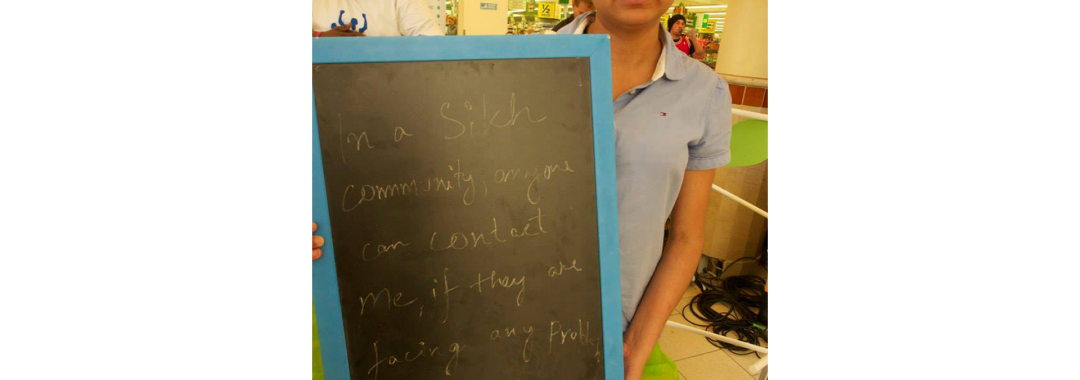 In a Sikh
community, anyone
can contact
me, if they are
facing any
1/2